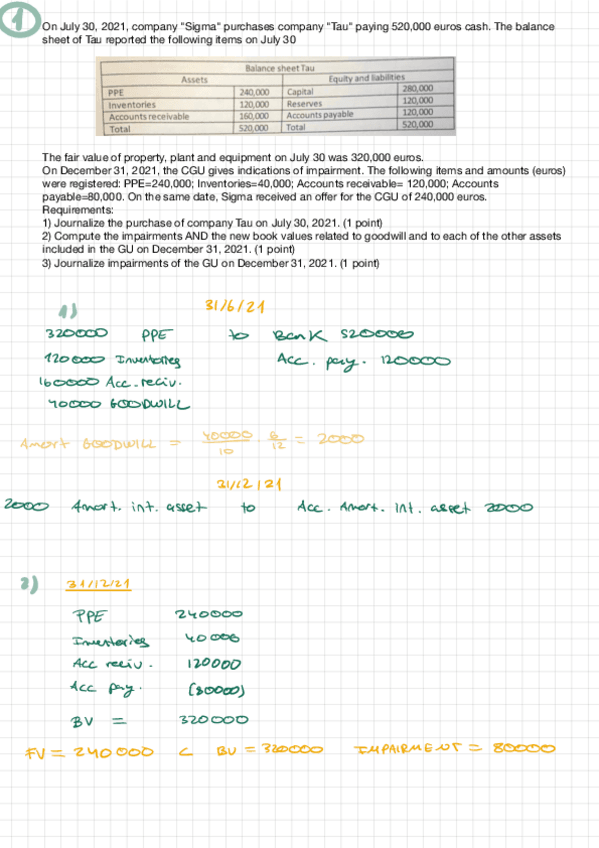 1
On July 30, 2021, company "Sigma" purchases company "Tau" paying 520,000 euros cash. The balance
sheet of Tau reported the following items on July 30
Balance sheet Tau
Assets Equity and liabilities
PPE 240,000 Capital 280,000
Inventories 120,000 Reserves 120,000
Accounts receivable 160,000 Accounts payable 120,000
Total 520,000 Total 520,000
The fair value of property, plant and equipment on July 30 was 320,000 euros.
On December 31, 2021, the CGU gives indications of impairment. The following items and amounts (euros)
were registered: PPE=240,000; Inventories=40,000; Accounts receivable= 120,000; Accounts
payable=80,000. On the same date, Sigma received an offer for the CGU of 240,000 euros.
Requirements:
1) Journalize the purchase of company Tau on July 30, 2021. (1 point)
2) Compute the impairments AND the new book values related to goodwill and to each of the other assets
included in the GU on December 31, 2021. (1 point)
3) Journalize impairments of the GU on December 31, 2021. (1 point)
1) 31/6/21
320000 PPE to Bank 520000
120000 Inventories Acc. pay. 120000
160000 Acc. reciv.
40000 GOODWILL
Amort GOODWILL = 40000/10 · 6/12 = 2000
31/12/21
2000 Amort. int. asset to Acc. Amort. Int. asset 2000
2) 31/12/21
PPE 240000
Inventories 40000
Acc reciv. 120000
Acc pay. (80000)
BV = 320000
FV = 240000 < BV = 320000 IMPAIRMENT = 80000